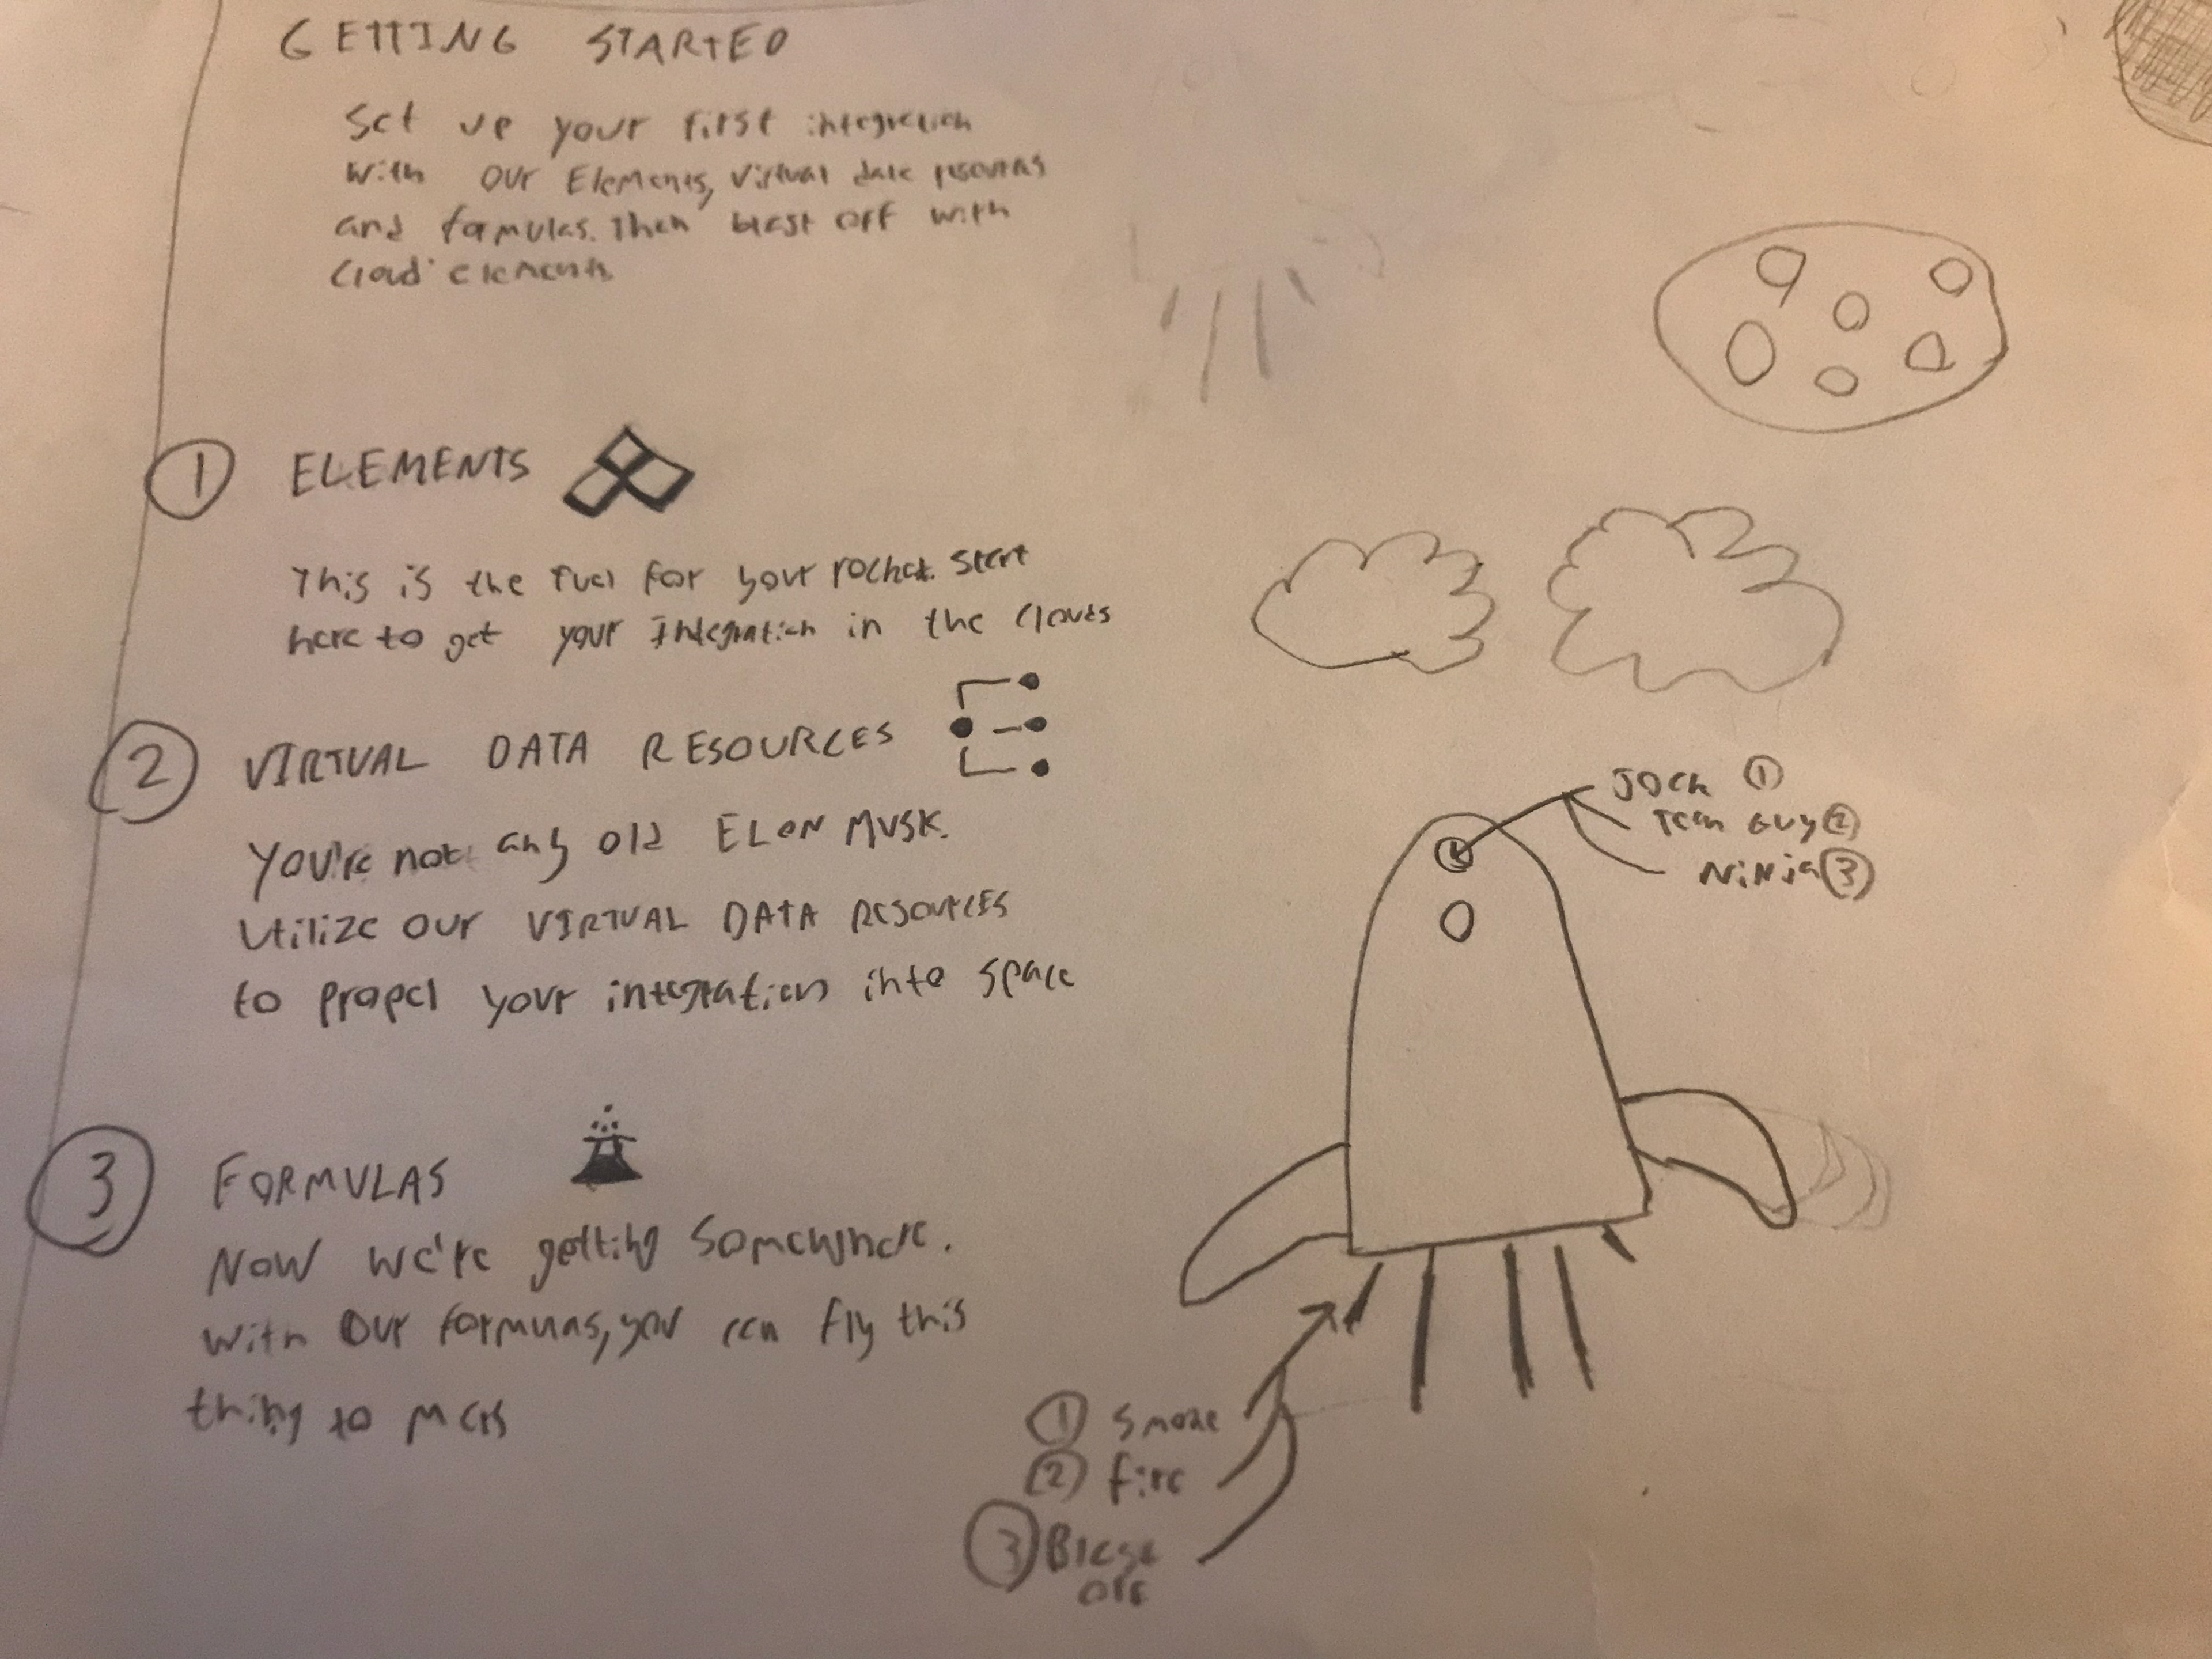 GETTING STARTED
Set up your first integration
with our Elements, virtual data resources
and formulas. Then blast off with
Cloud elements.
1 ELEMENTS
This is the fuel for your rocket. Start
here to get your Integration in the clouds
2 VIRTUAL DATA RESOURCES
You're not any old ELON MUSK.
Utilize our VIRTUAL DATA RESOURCES
to propel your integration into space
Jock 1
Tech Guy 2
Ninja 3
3 FORMULAS
Now we're getting somewhere.
with our formulas, you can fly this
thing to mars
1 Smoke
2 fire
3 Blast
off